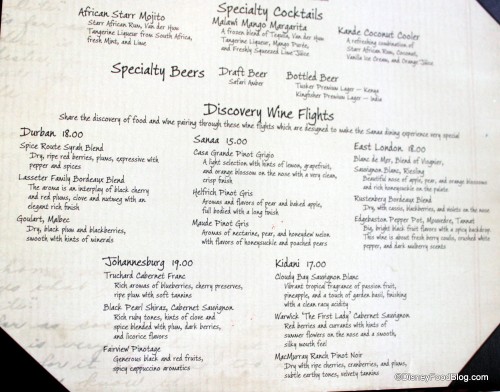 Specialty Cocktails
African Starr Mojito
Starr African Rum, Van der Hum
Tangerine Liqueur from South Africa,
fresh Mint, and Lime
Malawi Mango Margarita
A frozen blend of Tequila, Van der Hum
Tangerine Liqueur, Mango Purée,
and Freshly Squeezed Lime Juice
Kande Coconut Cooler
A refreshing combination of
Starr African Rum, Coconut,
Vanilla Ice Cream, and Orange Juice
Specialty Beers
Draft Beer
Safari Amber
Bottled Beer
Tusker Premium Lager — Kenya
Kingfisher Premium Lager — India
Discovery Wine Flights
Share the discovery of food and wine pairing through these wine flights which are designed to make the Sanaa dining experience very special
Durban 18.00
Spice Route Syrah Blend
Dry, ripe red berries, plums, expressive with
pepper and spices
Lasseter Family Bordeaux Blend
The aroma is an interplay of black cherry
and red plums, clove and nutmeg with an
elegant rich finish
Goulart, Malbec
Dry, black plum and blackberries,
smooth with hints of minerals
Sanaa 15.00
Casa Grande Pinot Grigio
A light selection with hints of lemon, grapefruit,
and orange blossom on the nose with a very clean,
crisp finish
Helfrich Pinot Gris
Aromas and flavors of pear and baked apple,
full bodied with a long finish
Maude Pinot Gris
Aromas of nectarine, pear, and honeydew melon
with flavors of honeysuckle and poached pears
East London 18.00
Blanc de Mer, Blend of Viognier,
Sauvignon Blanc, Riesling
Beautiful nose of apple, pear, and orange blossoms
and rich honeysuckle on the palate
Rustenberg Bordeaux Blend
Dry, with cassis, blackberries, and violets on the nose
Edgebaston Pepper Pot, Mourvedre, Tannat
Big, bright black fruit flavors with a spicy backdrop.
This wine is about fresh berry coulis, crushed white
pepper, and dark mulberry scents
Johannesburg 19.00
Truchard Cabernet Franc
Rich aromas of blueberries, cherry preserves,
ripe plum with soft tannins
Black Pearl Shiraz, Cabernet Sauvignon
Rich ruby tones, hints of clove and
spice blended with plum, dark berries,
and licorice flavors
Fairview Pinotage
Generous black and red fruits,
spicy cappuccino aromatics
Kidani 17.00
Cloudy Bay Sauvignon Blanc
Vibrant tropical fragrance of passion fruit,
pineapple, and a touch of garden basil, finishing
with a clean racy acidity
Warwick "The First Lady" Cabernet Sauvignon
Red berries and currants with hints of
summer flowers on the nose and a smooth,
silky mouth feel
MacMurray Ranch Pinot Noir
Dry with ripe cherries, cranberries, and plums,
subtle earthy tones, velvety tannins
©DisneyFoodBlog.com